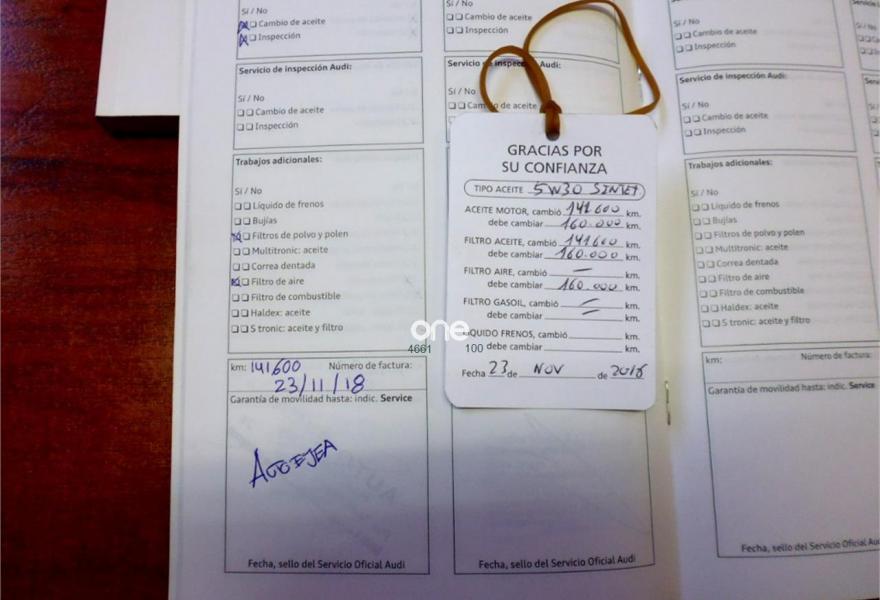 Sí / No
Cambio de aceite
Inspección
Servicio de inspección Audi:
Sí / No
Cambio de aceite
Inspección
Trabajos adicionales:
Sí / No
Líquido de frenos
Bujías
Filtros de polvo y polen
Multitronic: aceite
Correa dentada
Filtro de aire
Filtro de combustible
Haldex: aceite
S tronic: aceite y filtro
km: 141600 Número de factura:
23/11/18
Garantía de movilidad hasta: indic. Service
Fecha, sello del Servicio Oficial Audi
Sí / No
Cambio de aceite
Inspección
Servicio de inspección Audi:
Sí / No
Cambio de aceite
GRACIAS POR
SU CONFIANZA
TIPO ACEITE 5W30 SINTET
ACEITE MOTOR, cambió 141.600 km.
debe cambiar 160.000 km.
FILTRO ACEITE, cambió 141.600 km.
debe cambiar 160.000 km.
FILTRO AIRE, cambió — km.
debe cambiar 160.000 km.
FILTRO GASOIL, cambió — km.
debe cambiar — km.
LIQUIDO FRENOS, cambió km.
debe cambiar km.
Fecha 23 de NOV de 2018
one
4661 100
Fecha, sello del Servicio Oficial Audi
Sí / No
Cambio de aceite
Inspección
Servicio de inspección Audi:
Sí / No
Cambio de aceite
Inspección
Trabajos adicionales:
Sí / No
Líquido de frenos
Bujías
Filtros de polvo y polen
Multitronic: aceite
Correa dentada
Filtro de aire
Filtro de combustible
Haldex: aceite
S tronic: aceite y filtro
km: Número de factura:
Garantía de movilidad hasta: indic. Service
Fecha, sello del Servicio Oficial Audi